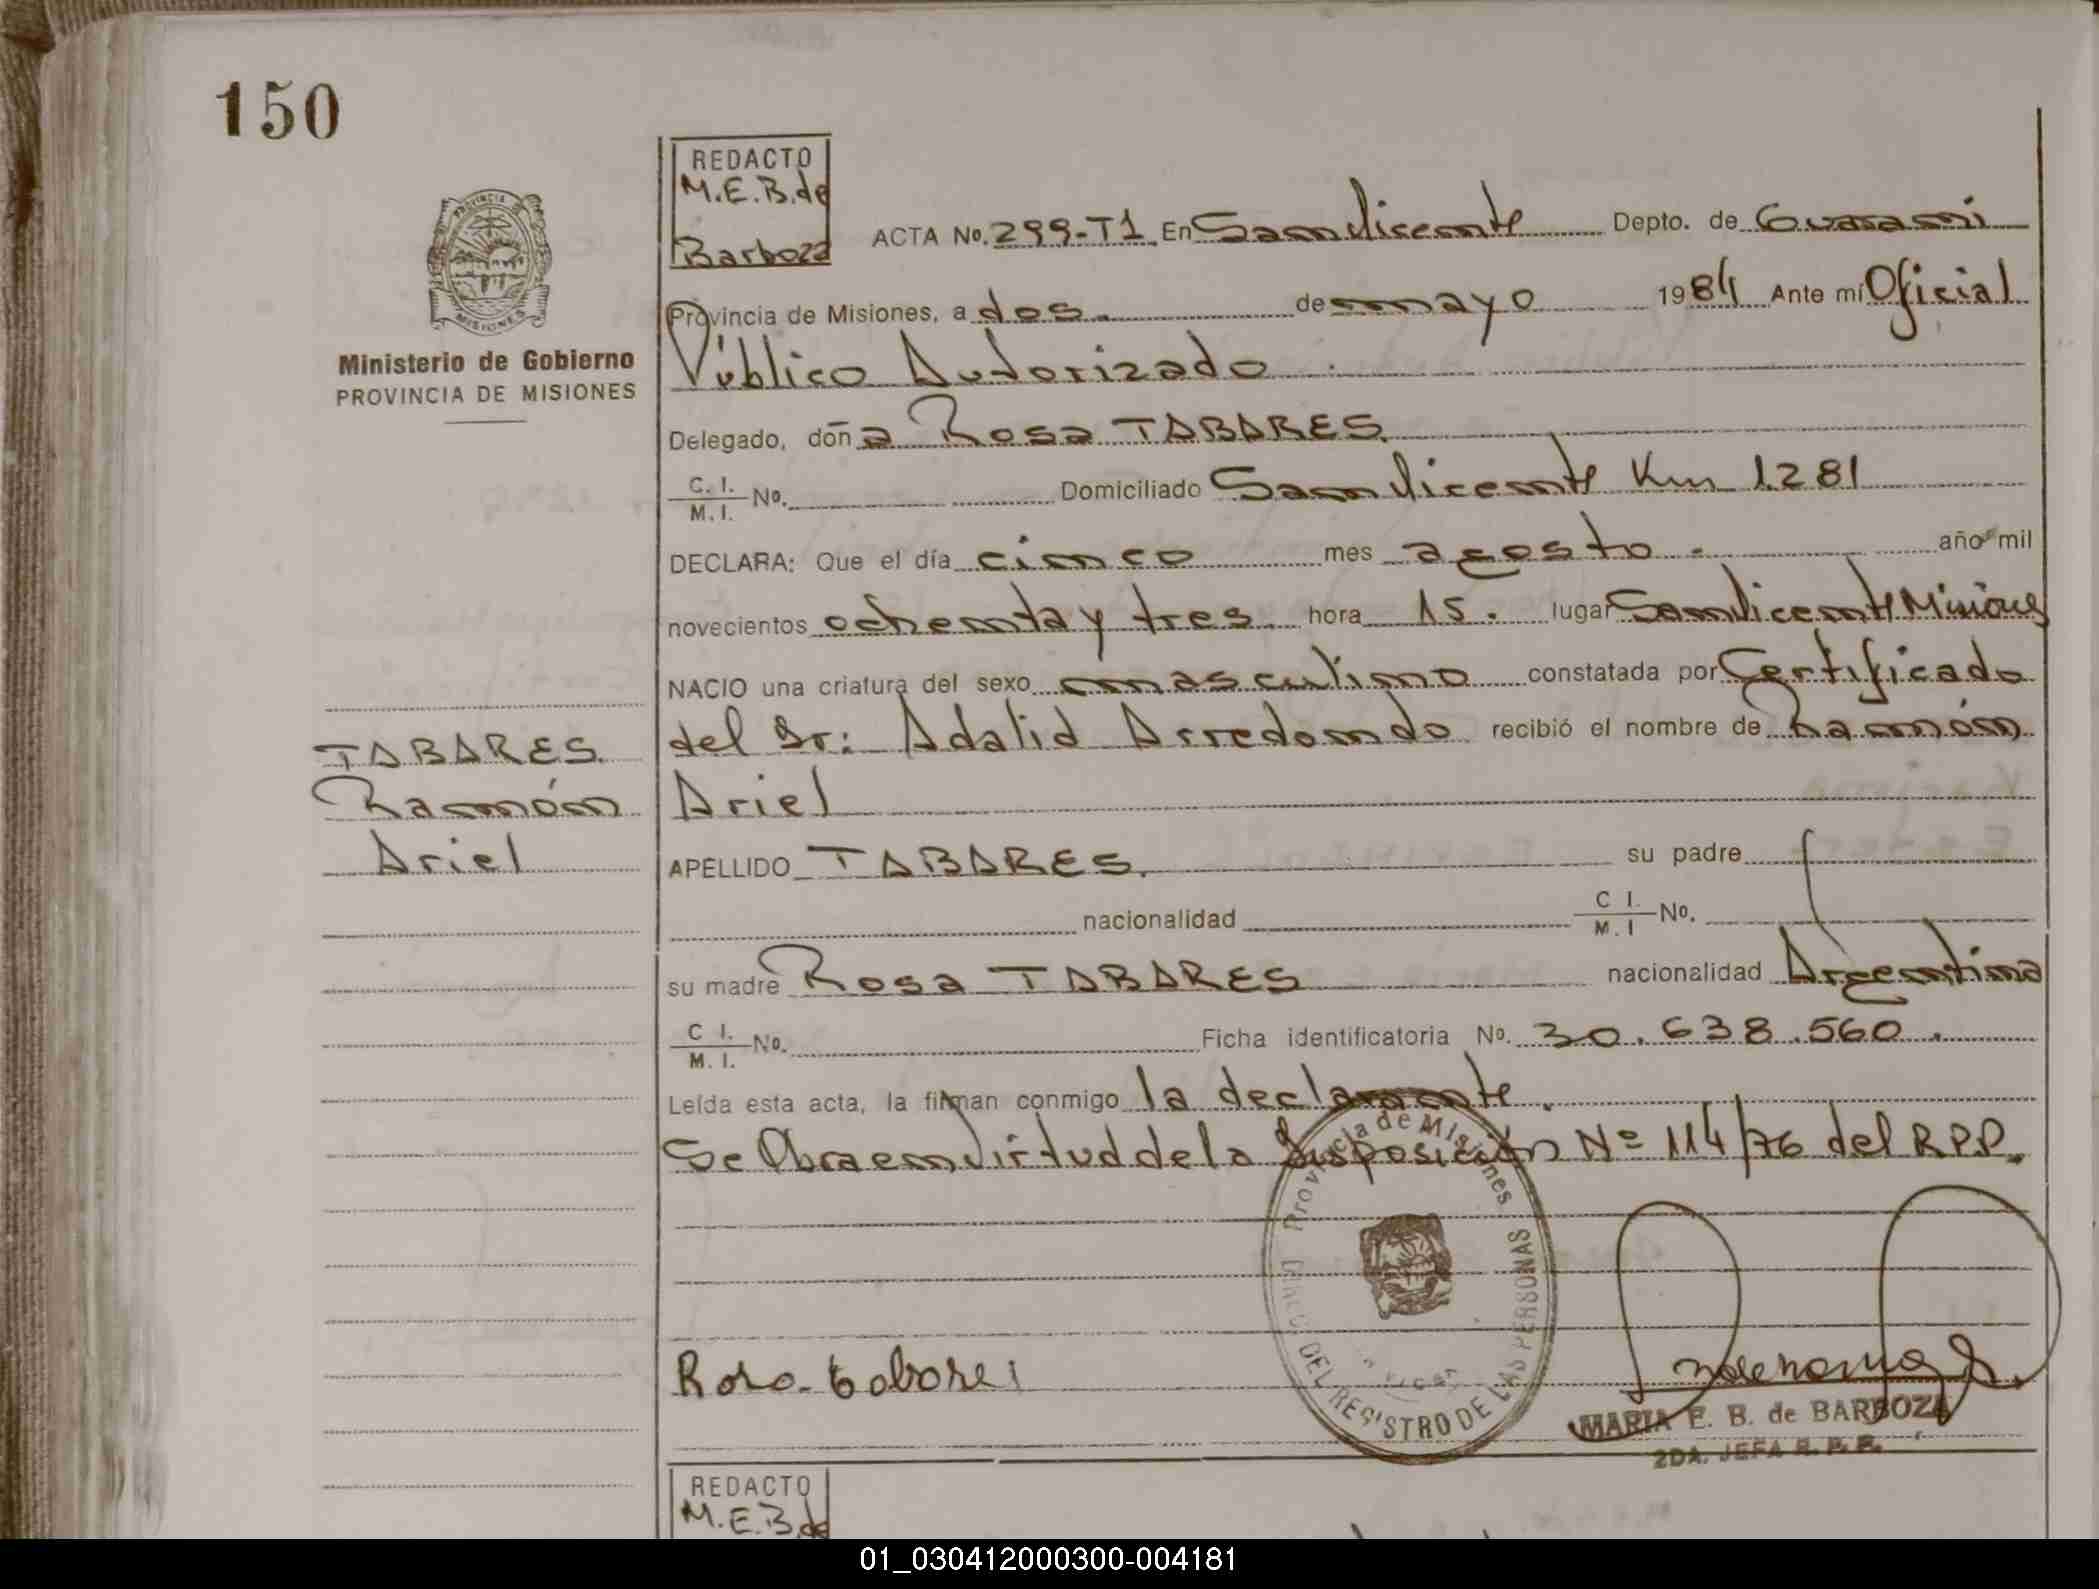 150
REDACTO
M.E.B. de
Barboza
ACTA No. 299-T1 En San Vicente Depto. de Guaraní
Provincia de Misiones, a dos. de mayo 1984 Ante mí Oficial
Público Autorizado
Delegado, doña Rosa TABARES.
C. I.
M. I. No. Domiciliado San Vicente Km 1.281
DECLARA: Que el día cinco mes agosto. año mil
novecientos ochenta y tres. hora 15. lugar San Vicente Misiones
NACIO una criatura del sexo masculino constatada por Certificado
del Sr: Adalid Arredondo recibió el nombre de Ramón
Ariel
APELLIDO TABARES. su padre
nacionalidad C I. M. I No.
su madre Rosa TABARES nacionalidad Argentina
C I.
M. I. No. Ficha identificatoria No. 30.638.560.
Leída esta acta, la firman conmigo la declarante.
Se Obra en virtud de la Disposición Nº 114/76 del R.P.P.
PROVINCIA
MISIONES
Ministerio de Gobierno
PROVINCIA DE MISIONES
TABARES.
Ramón
Ariel
Provincia de Misiones
DEL REGISTRO DE LAS PERSONAS
Rosa Tabares
MARIA E. B. de BARBOZA
2DA. JEFA R. P. P.
REDACTO
M.E.B. de
01_030412000300-004181